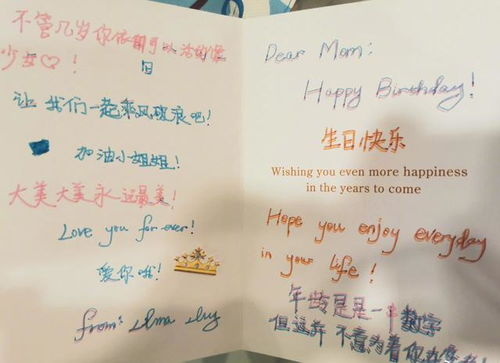 不管几岁你依旧可以活的像
少女♡!
让我们一起乘风破浪吧!
加油小姐姐!
大美大美永远最美!
Love you for ever!
爱你哦!
from: Alma
Dear Mom:
Happy Birthday!
生日快乐
Wishing you even more happiness
in the years to come
Hope you enjoy everyday
in your life!
年龄是是一串数字
但这并不意为着你